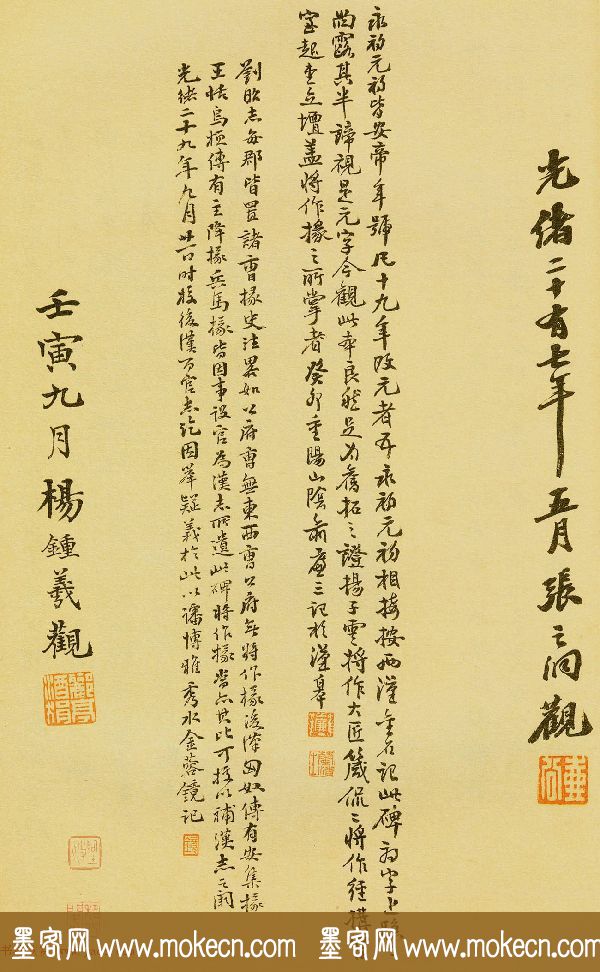 光緒二十有七年五月張之洞觀
永初元初皆安帝年號凡十九年改元者五永初元初相接按西漢金石記此碑初字上
尚露其半諦視是元字今觀此本良然足為舊拓之證揚子雲將作大匠箴侃侃將作經構
室起堂立壇蓋將作掾之所掌者癸卯重陽山陰俞廉三記於漢皋
劉昭志每郡皆置諸曹掾史法略如公府曹無東西曹公府無將作掾後漢匈奴傳有安集掾
王恬烏桓傳有主降掾兵馬掾皆因事設官為漢志所遺此碑將作掾當亦其比可援以補漢志之闕
光緒二十九年九月廿一日時校後漢百官志訖因舉疑義於此以諗博雅秀水金蓉鏡記
壬寅九月楊鍾羲觀
墨客网 www.mokecn.com 墨客网 www.mokecn.com